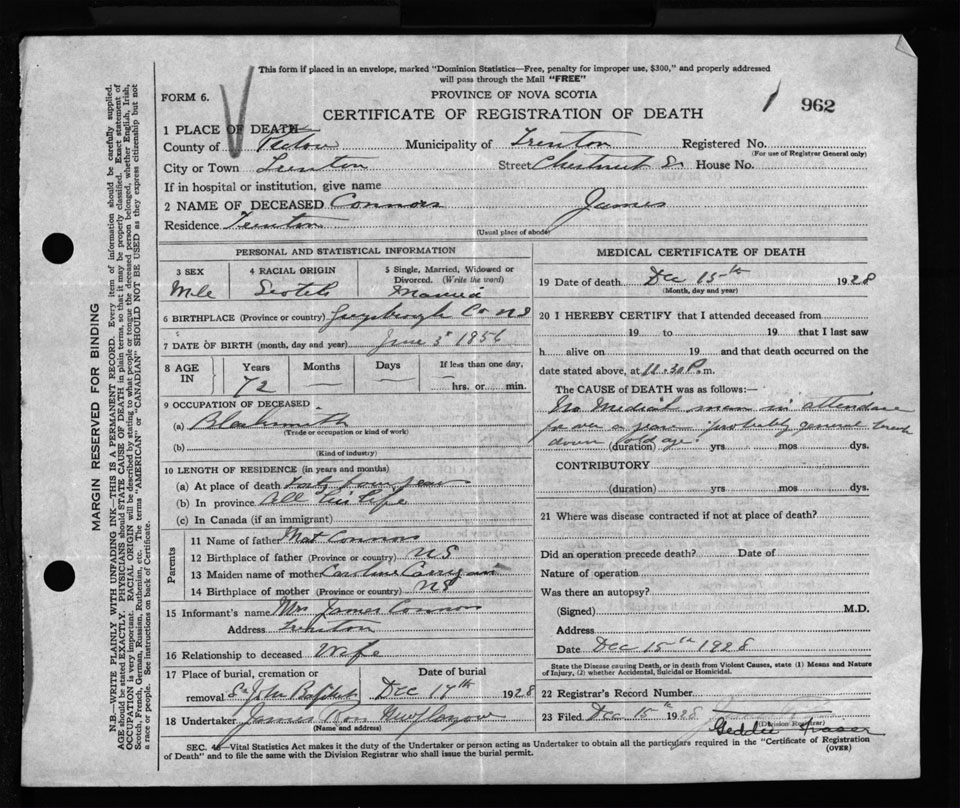 This form if placed in an envelope, marked "Dominion Statistics—Free, penalty for improper use, $300," and properly addressed
will pass through the Mail "FREE"
FORM 6.
PROVINCE OF NOVA SCOTIA
962
CERTIFICATE OF REGISTRATION OF DEATH
1 PLACE OF DEATH
County of Pictou Municipality of Trenton Registered No.
(For use of Registrar General only)
City or Town Trenton Street Chestnut St House No.
If in hospital or institution, give name
2 NAME OF DECEASED Connors James
Residence Trenton
(Usual place of abode)
PERSONAL AND STATISTICAL INFORMATION
3 SEX 4 RACIAL ORIGIN 5 Single, Married, Widowed or
Divorced. (Write the word)
Mle Scotch Married
6 BIRTHPLACE (Province or country) Guysborough Co NS
7 DATE OF BIRTH (month, day and year) June 3 1856
8 AGE IN Years Months Days If less than one day,
72 hrs. or min.
9 OCCUPATION OF DECEASED
(a) Blacksmith
(Trade or occupation or kind of work)
(b)
(Kind of industry)
10 LENGTH OF RESIDENCE (in years and months)
(a) At place of death Forty four year
(b) In province All his life
(c) In Canada (if an immigrant)
Parents
11 Name of father Mat Connors
12 Birthplace of father (Province or country) NS
13 Maiden name of mother Caroline Corrigan
14 Birthplace of mother (Province or country) NS
15 Informant's name Mrs James Connors
Address Trenton
16 Relationship to deceased Wife
17 Place of burial, cremation or Date of burial
removal St John Baptist Dec 17th 1928
18 Undertaker James Ross New Glasgow
(Name and address)
MEDICAL CERTIFICATE OF DEATH
19 Date of death Dec 15th 1928
(Month, day and year)
20 I HEREBY CERTIFY that I attended deceased from
19 to 19 that I last saw
h alive on 19 and that death occurred on the
date stated above, at 11.30 P.m.
The CAUSE OF DEATH was as follows:—
No Medical man in attendance
for over a year probably general break
down old age
(duration) yrs mos dys.
CONTRIBUTORY
(duration) yrs mos dys.
21 Where was disease contracted if not at place of death?
Did an operation precede death? Date of
Nature of operation
Was there an autopsy?
(Signed) M.D.
Address
Date Dec 15th 1928
State the Disease causing Death, or in death from Violent Causes, state (1) Means and Nature
of Injury, (2) whether Accidental, Suicidal or Homicidal.
22 Registrar's Record Number
23 Filed Dec 15th 1928
(Division Registrar)
Geddie Fraser
SEC. 48—Vital Statistics Act makes it the duty of the Undertaker or person acting as Undertaker to obtain all the particulars required in the "Certificate of Registration
of Death" and to file the same with the Division Registrar who shall issue the burial permit.
(OVER)
MARGIN RESERVED FOR BINDING
N.B.—WRITE PLAINLY WITH UNFADING INK—THIS IS A PERMANENT RECORD. Every item of information should be carefully supplied.
AGE should be stated EXACTLY. PHYSICIANS should STATE CAUSE OF DEATH in plain terms, so that it may be properly classified. Exact statement of
OCCUPATION is very important. RACIAL ORIGIN will be described by stating to what people or tongue the deceased person belonged, whether English, Irish,
Scotch, French, German, Russian, Ruthenian, etc. The terms "AMERICAN" or "CANADIAN" SHOULD NOT BE USED as they express citizenship but not
a race or people. See instructions on back of Certificate.